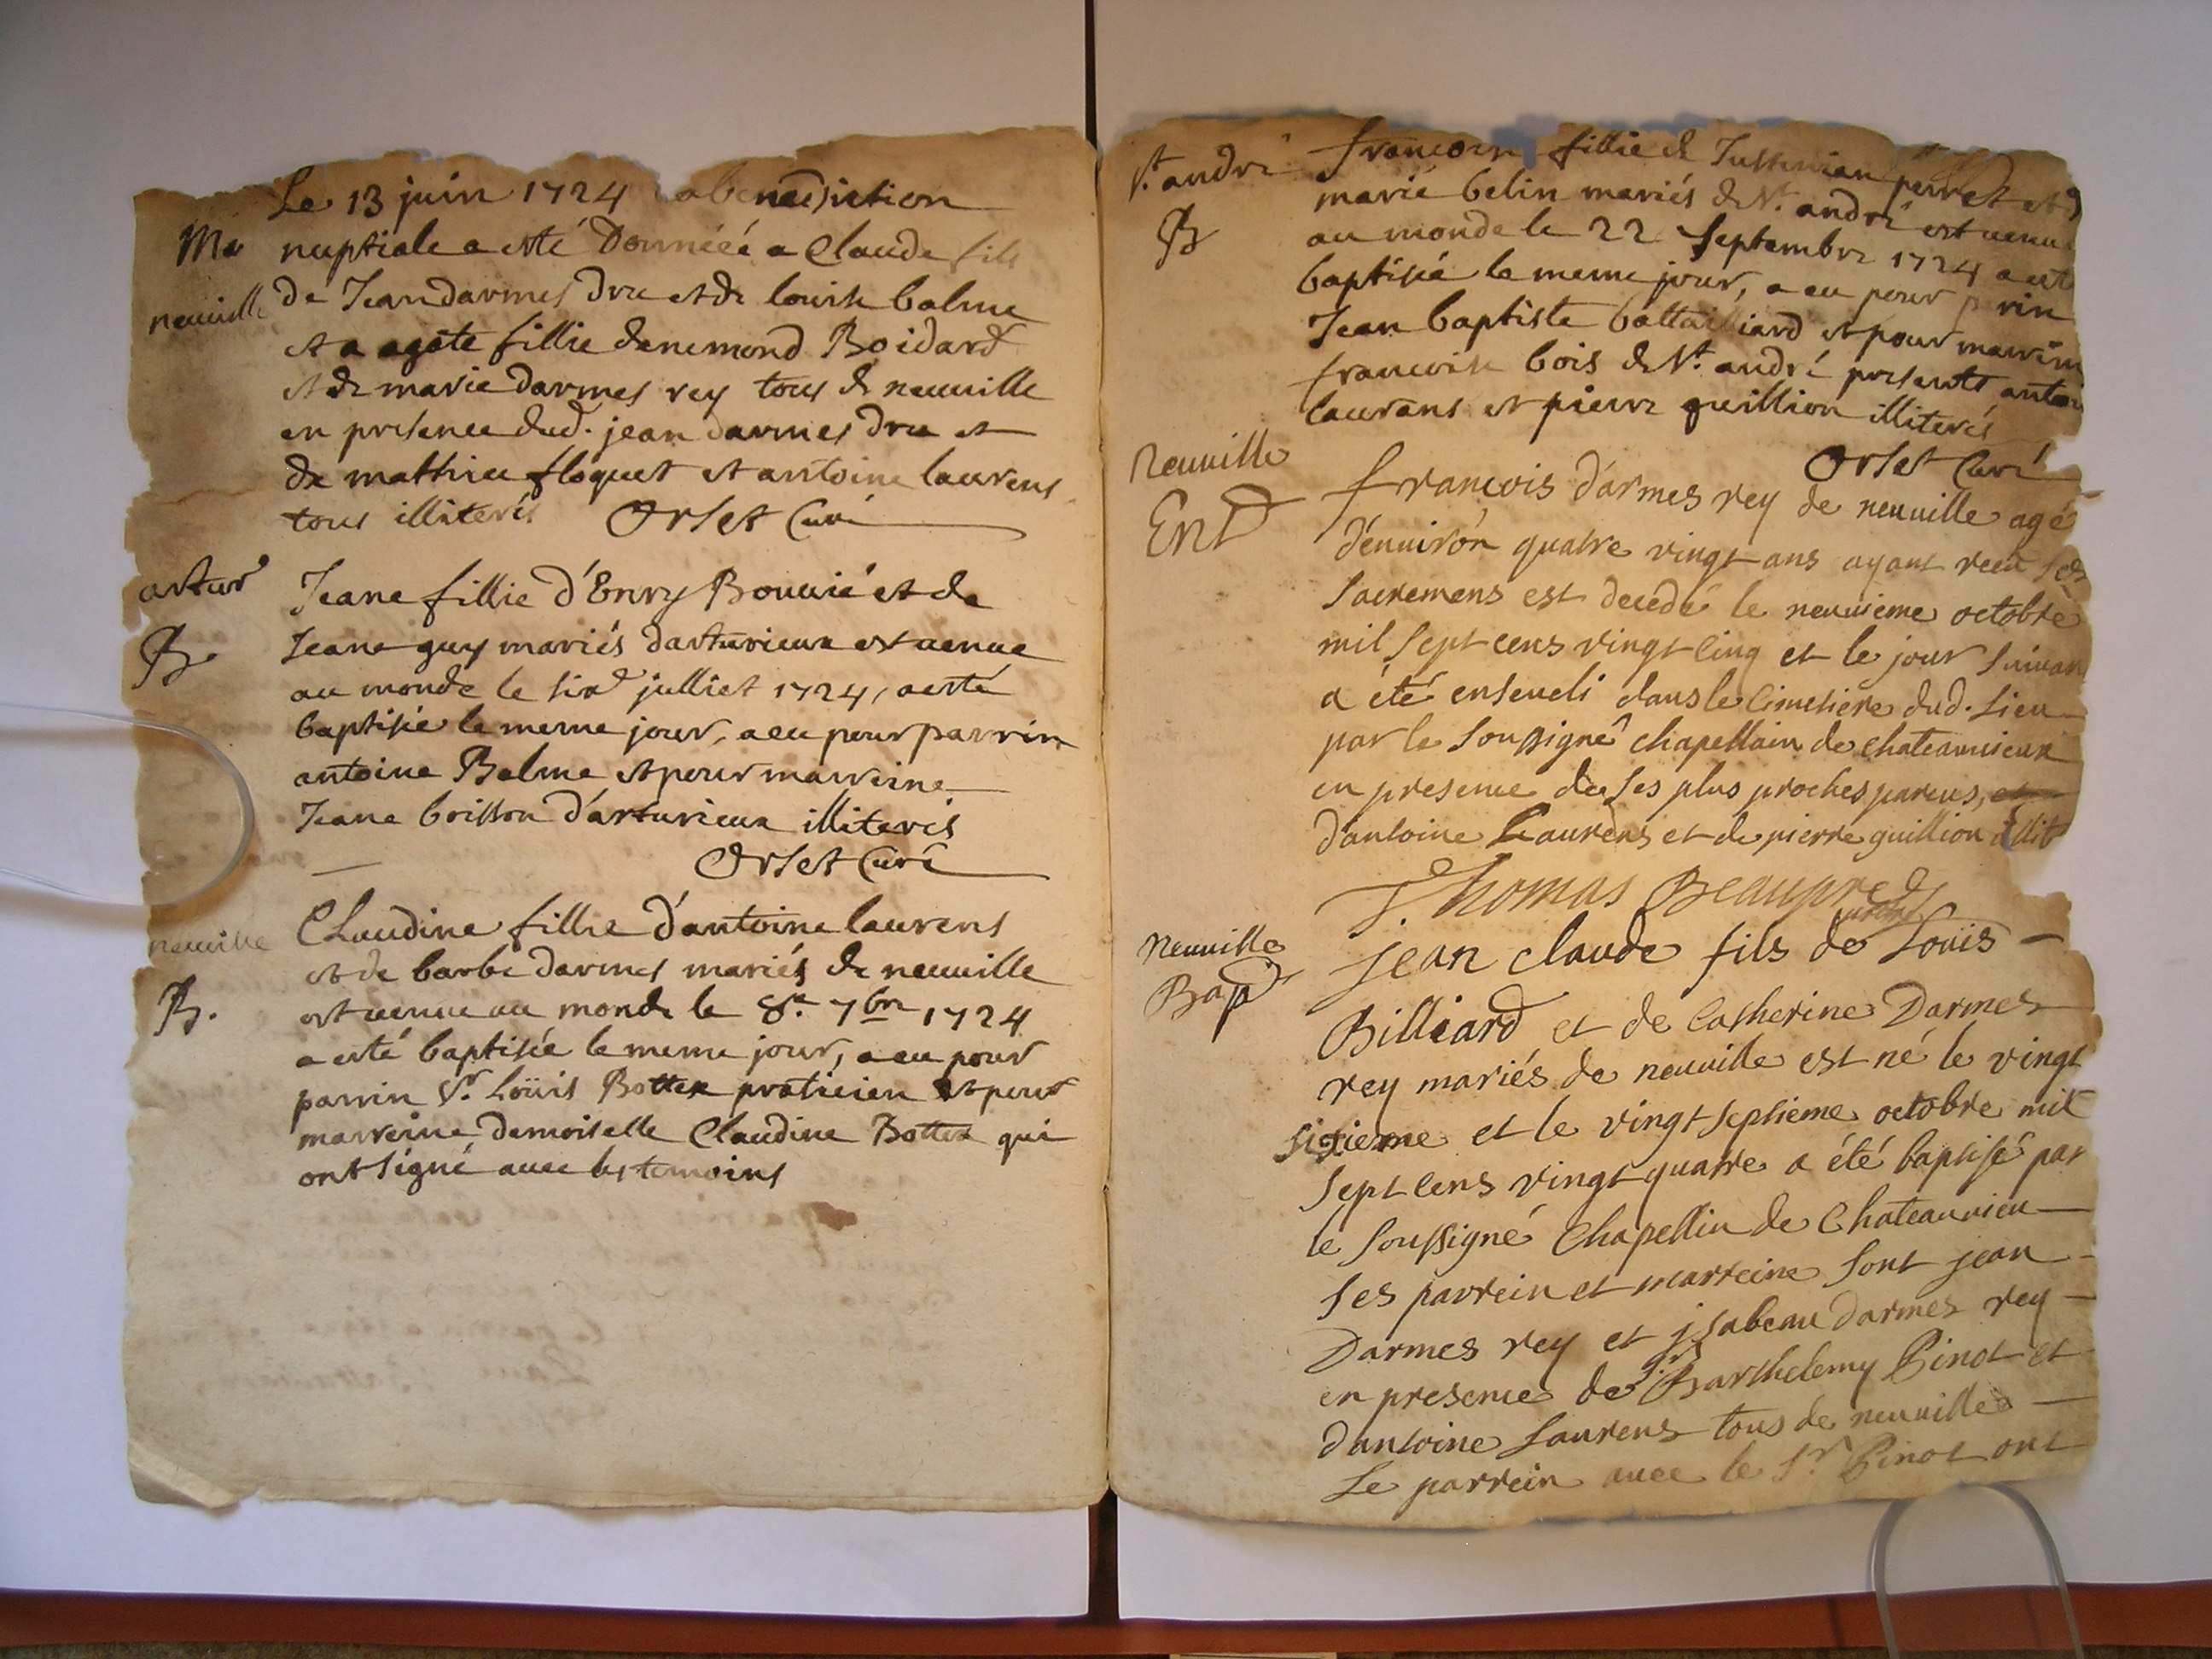 Le 13 juin 1724 la benediction
Ma nuptiale a esté Donnéé a Claude fils
neuuille de Jean darmes dru et de louise balme
et a agate fillie denemond Boidard
et de marie darmes rey tous de neuuille
en presence dud. jean darmes dru et
de mathieu floquet et antoine laurens
tous illiterés Orset Curé
artur Jeane fillie d'Enry Bouuié et de
B. Jeane guy mariés darturieux est uenue
au monde le six juilliet 1724, a esté
baptisée le meme jour, a eu pour parrin
antoine Balme et pour marreine
Jeane boisson d'arturieux illiterés
Orset Curé
neuuille Claudine fillie d'antoine laurens
et de barbe darmes mariés de neuuille
B. est uenue au monde le 8e 7bre 1724
a esté baptisée le meme jour, a eu pour
parrin Sr. Loüis Bottex praticien et pour
marreine demoiselle Claudine Bottex qui
ont signé auec les temoins
St. andré francoise fillie de Justinian perret et d
marie belin mariés de St. andré est uenue
B au monde le 22 Septembre 1724 a esté
baptisée le meme jour, a eu pour p rin
Jean baptiste battailliard et pour marrein
francoise bois de St. andré presents antoi
laurans et pierre guillion illiterés
Orset Curé
Neuuille
Ent francois d'armes rey de neuuille agé
d'enuiron quatre vingt ans ayant receu ses
sacremens est decedé le neuuieme octobre
mil sept cens vingt cinq et le jour suiuan
a été enseueli dans le Cimetiere dud. Lieu
par le soussigné chapellain de chateauuieux
en presence de ses plus proches parens, et
d'antoine Laurens et de pierre guillion illit
Thomas Beaupred
Neuuille jean claude fils de Louis
Bap Billiard et de Catherine Darmes
rey mariés de neuuille est né le vingt
sixieme et le vingt septieme octobre mil
sept cens vingt quatre a été baptisé par
le soussigné Chapellin de Chateauuieu
ses parrein et marreine sont jean
Darmes rey et jsabeau Darmes rey
en presence de Sr Barthelemy Pinot et
d'antoine Laurens tous de neuuille
Le parrein auec le Sr. Pinot ont